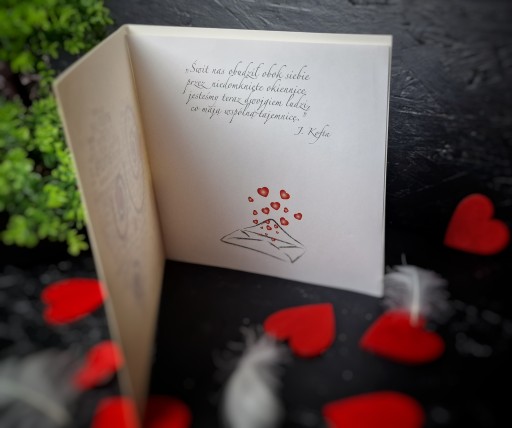 „Świt nas obudził obok siebie
przez niedomknięte okiennice,
jesteśmy teraz dwojgiem ludzi,
co mają wspólną tajemnicę."
J. Kofta